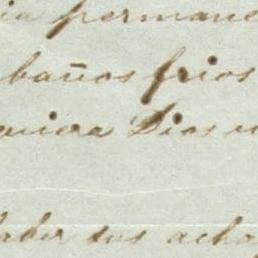 ia permane
baños frios
quiera Dios
aber sus acha